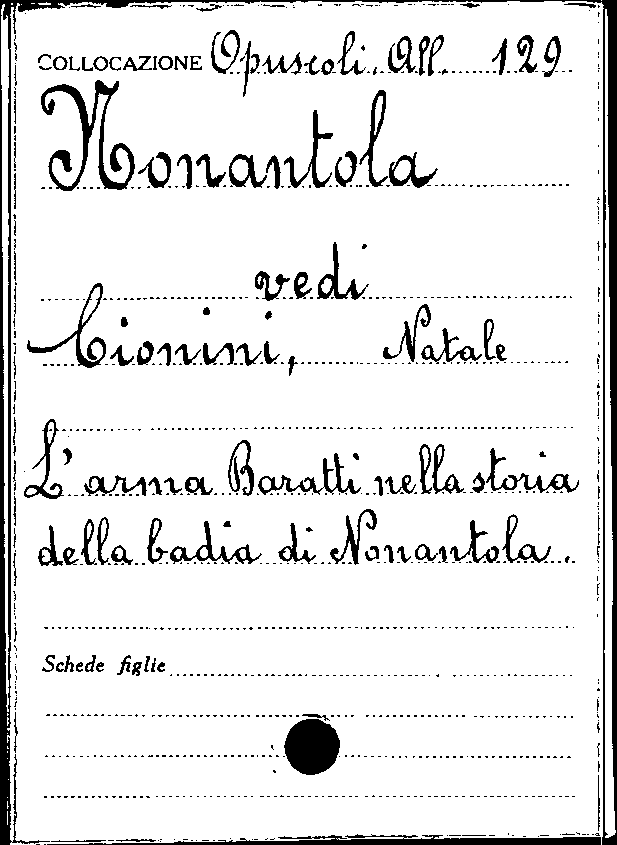 COLLOCAZIONE Opuscoli. All. 129
Nonantola
vedi
Cionini, Natale
L'arma Baratti nella storia
della badia di Nonantola.
Schede figlie